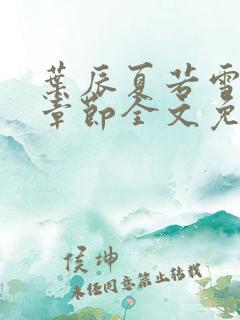 叶辰夏若雪
章节全文免
侯坤
未经同意禁止转载